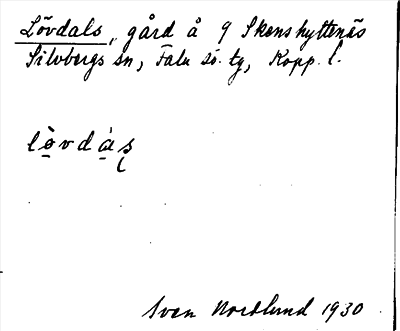 Lövdals, gård å 9 Skenshyttenäs
Silvbergs sn, Falu sö. tg, Kopp. l.
lö̀vdás̨
Sven Nordlund 1930